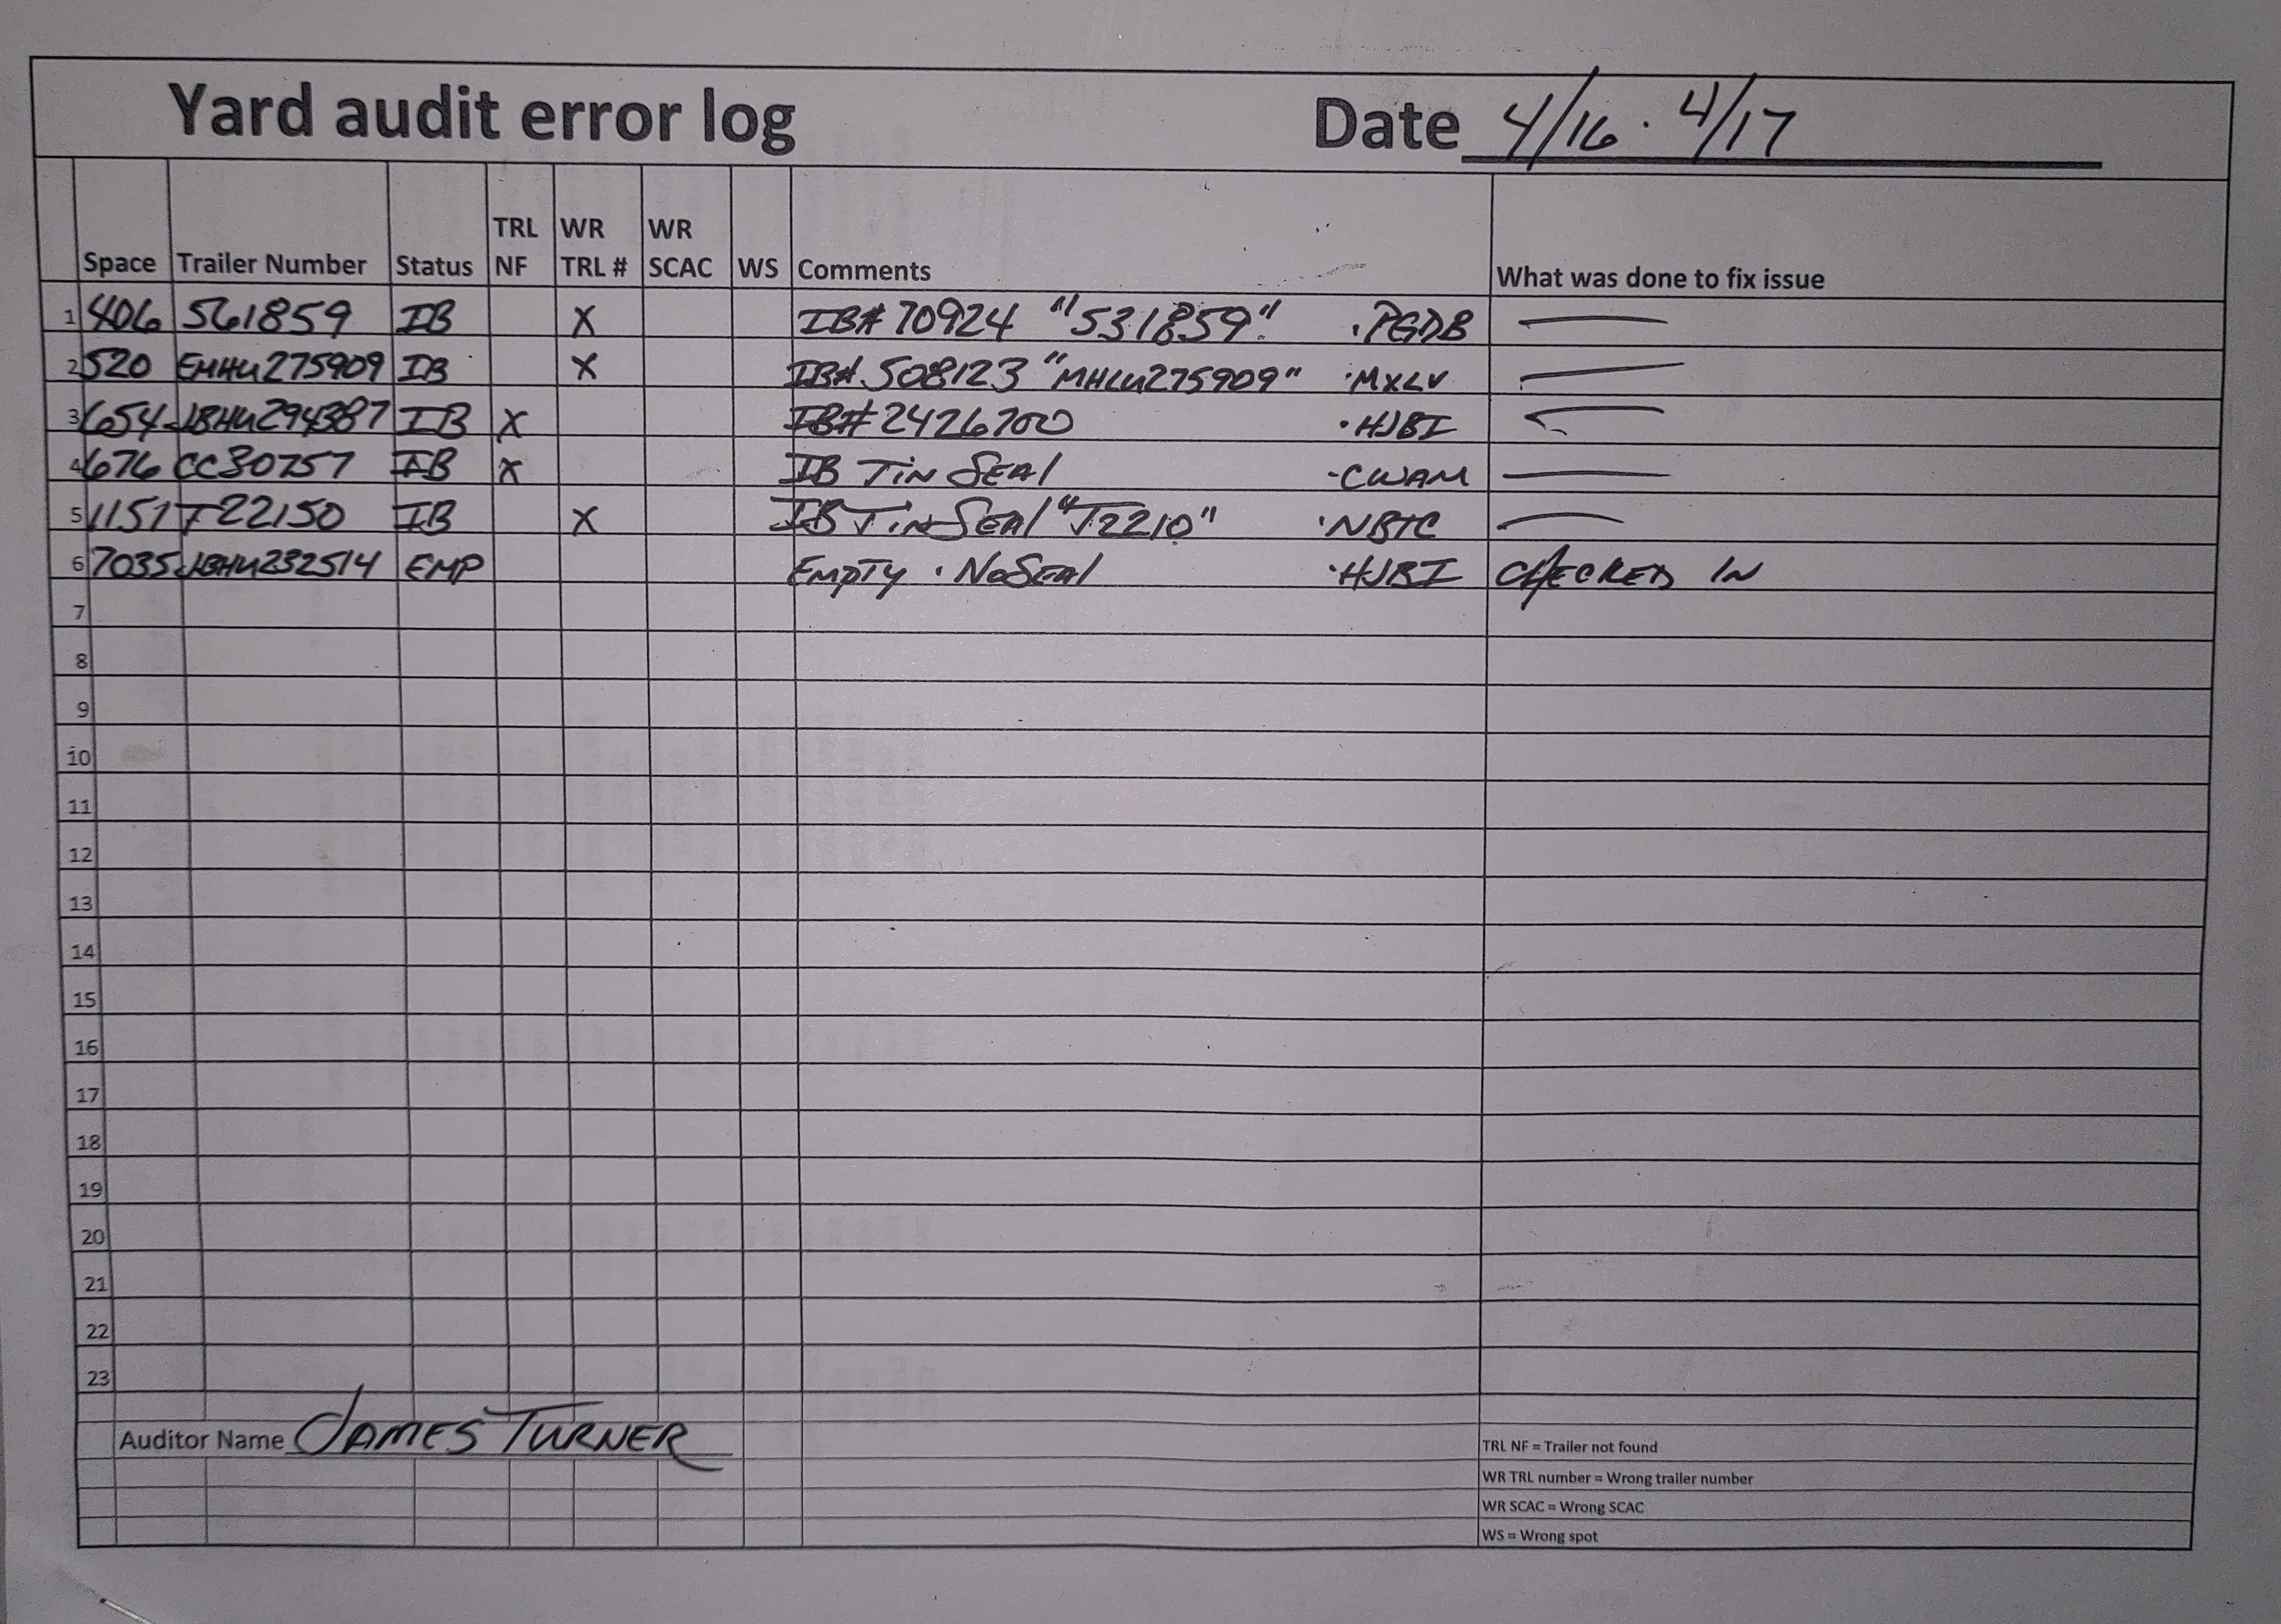 Yard audit error log Date 4/16 · 4/17
Space Trailer Number Status TRL NF WR TRL # WR SCAC WS Comments What was done to fix issue
1 406 561859 IB X IB# 70924 "531859" ·PGDB —
2 520 EMHU275909 IB X IB# 508123 "MHLU275909" ·MXLV —
3 654 JBHU294387 IB X IB# 2426700 ·HJBI —
4 676 CC30757 IB X IB TiN SEAl -CWAM —
5 1151 T22150 IB X IB TiN SEAl "T2210" ·NBTC —
6 7035 JBHU232514 EMP EMPTY · No SEAl ·HJBI CHECKED IN
7
8
9
10
11
12
13
14
15
16
17
18
19
20
21
22
23
Auditor Name JAMES TURNER
TRL NF = Trailer not found
WR TRL number = Wrong trailer number
WR SCAC = Wrong SCAC
WS = Wrong spot